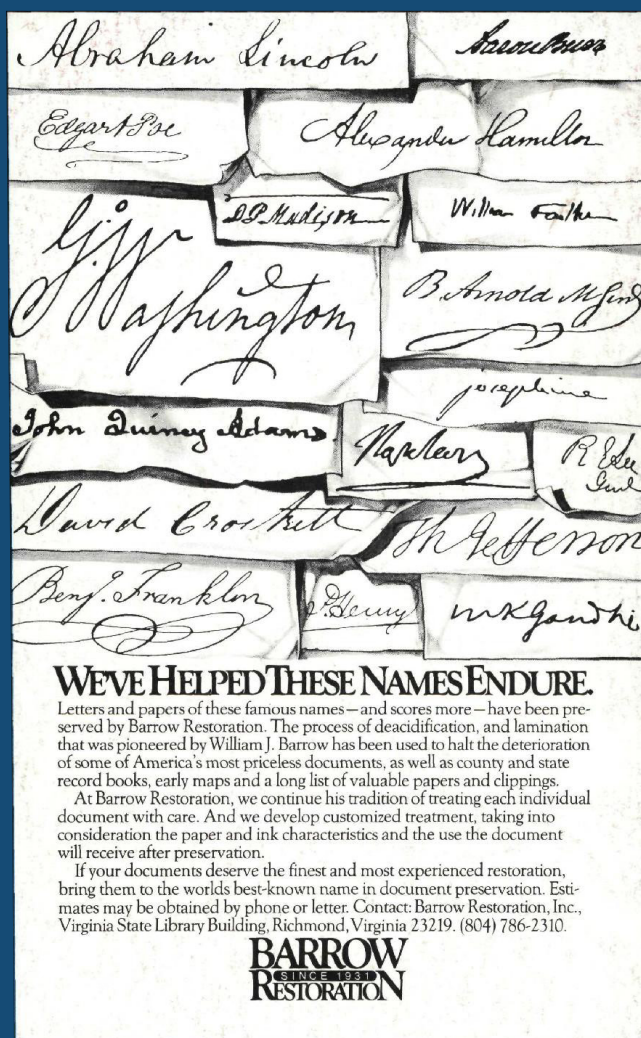 Abraham Lincoln
Aaron Burr
Edgar A Poe
Alexander Hamilton
D.P. Madison
William Faulkner
G. Washington
B. Arnold M Genl
josephine
John Quincy Adams.
R E Lee
Genl
David Crockett
Th Jefferson
Benj. Franklin
P. Henry
MKGandhi
WE'VE HELPED THESE NAMES ENDURE.
Letters and papers of these famous names—and scores more—have been pre-
served by Barrow Restoration. The process of deacidification, and lamination
that was pioneered by William J. Barrow has been used to halt the deterioration
of some of America's most priceless documents, as well as county and state
record books, early maps and a long list of valuable papers and clippings.
At Barrow Restoration, we continue his tradition of treating each individual
document with care. And we develop customized treatment, taking into
consideration the paper and ink characteristics and the use the document
will receive after preservation.
If your documents deserve the finest and most experienced restoration,
bring them to the worlds best-known name in document preservation. Esti-
mates may be obtained by phone or letter. Contact: Barrow Restoration, Inc.,
Virginia State Library Building, Richmond, Virginia 23219. (804) 786-2310.
BARROW
SINCE 1931
RESTORATION